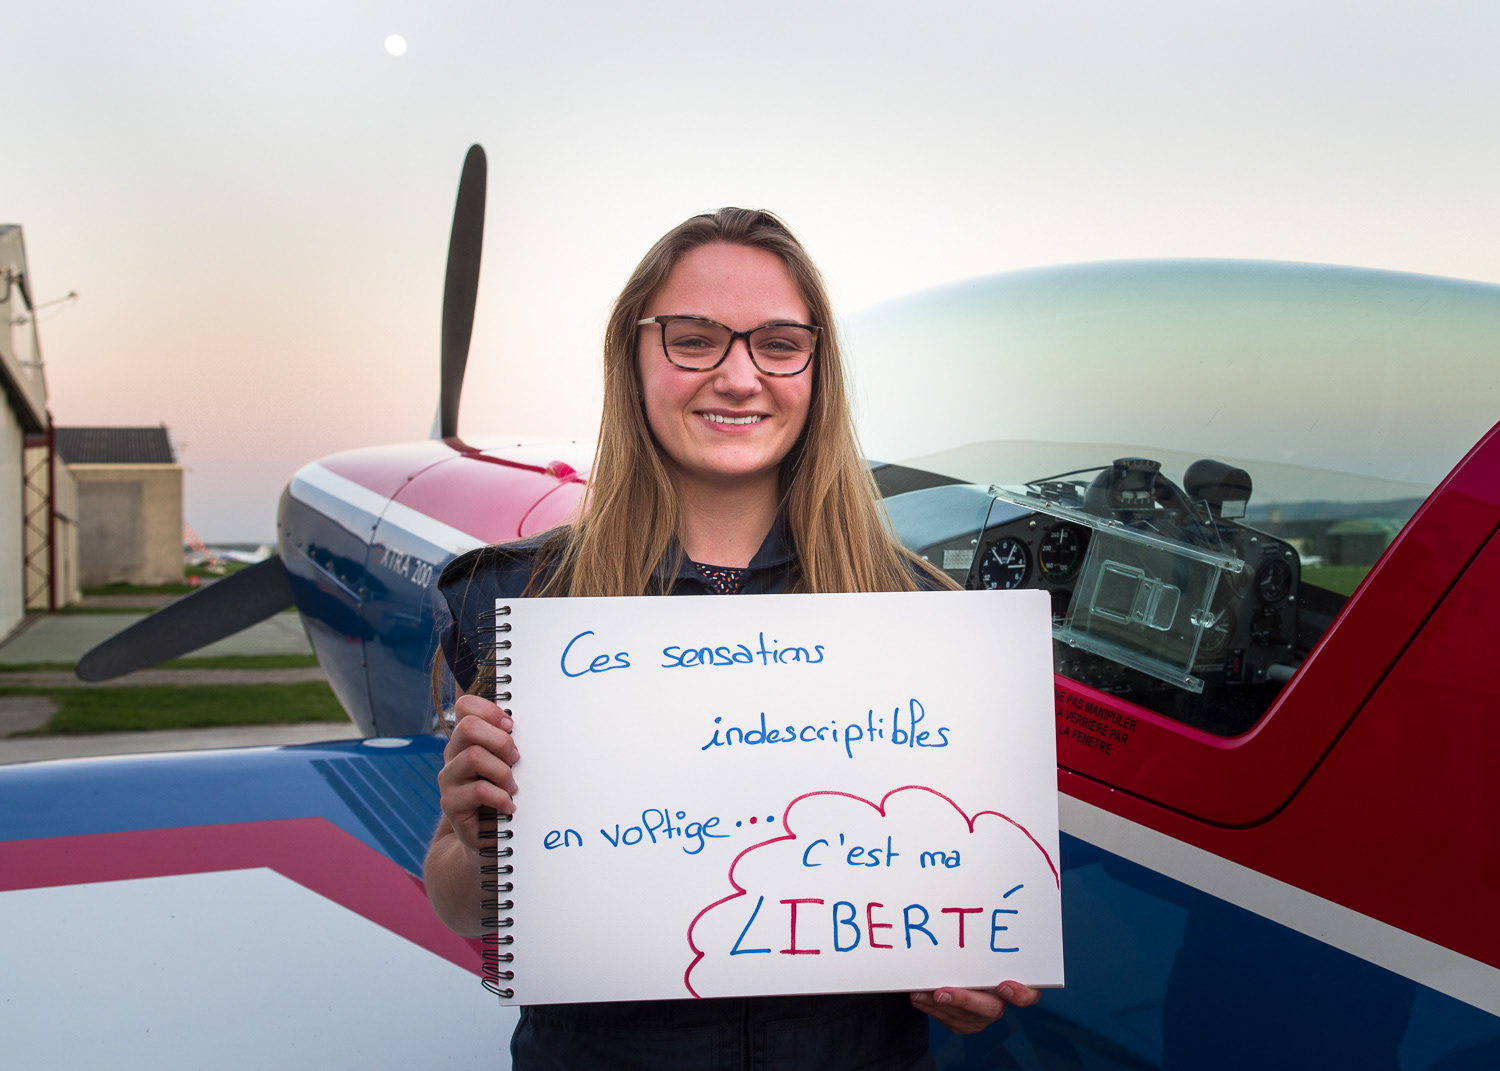 XTRA 200
Ces sensations
indescriptibles
en voltige...
C'est ma
LIBERTÉ
PAS MANIPULER
VERRIERE PAR
LA FENETRE